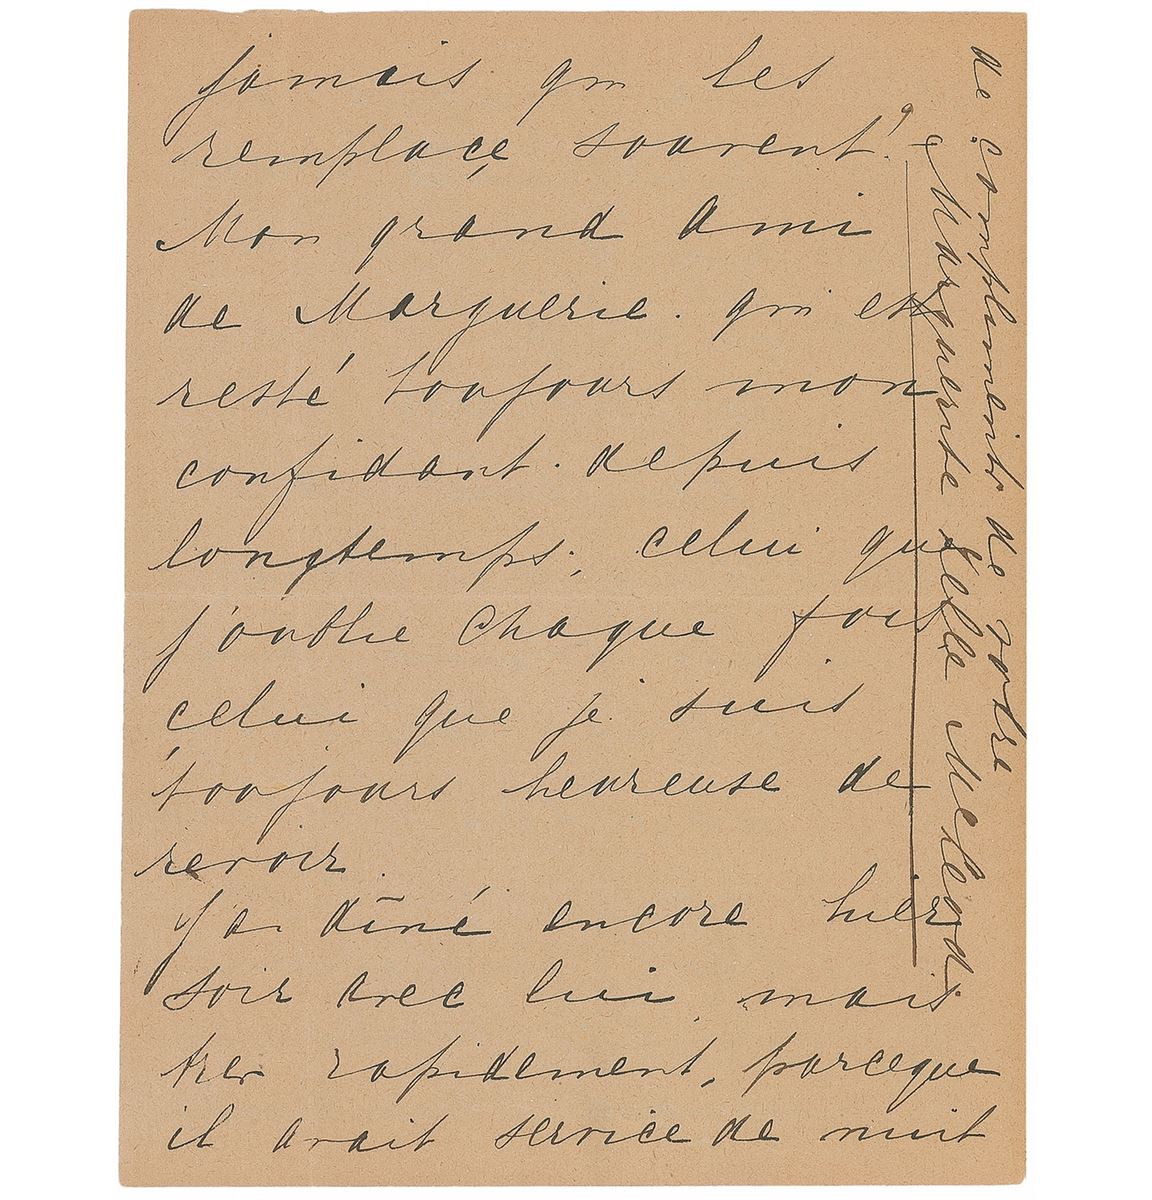 jamais qui les
remplace souvent!
Mon grand ami
de Marguerie. qui est
resté toujours mon
confidant. depuis
longtemps; celui que
j'oublie chaque fois
celui que je suis
toujours heureuse de
revoir.
J'ai dîné encore hier
soir avec lui mais
tres rapidement, parceque
il avait service de nuit
de compliments de votre
Marguerite Zelle McLeod.